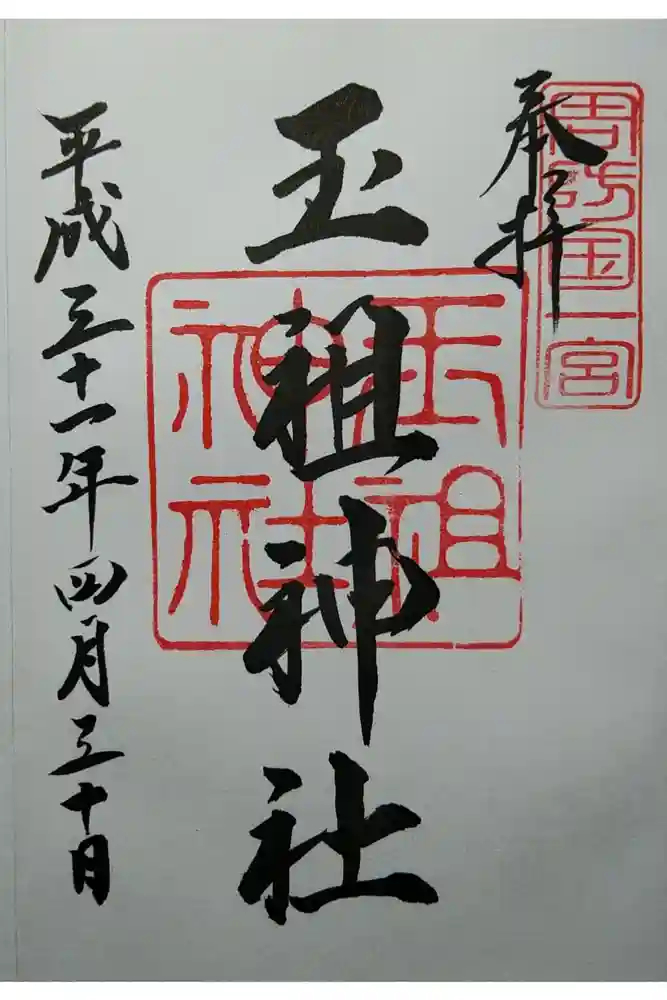 奉拝
周防国一宮
玉祖神社
玉祖
神社
平成三十一年四月三十日